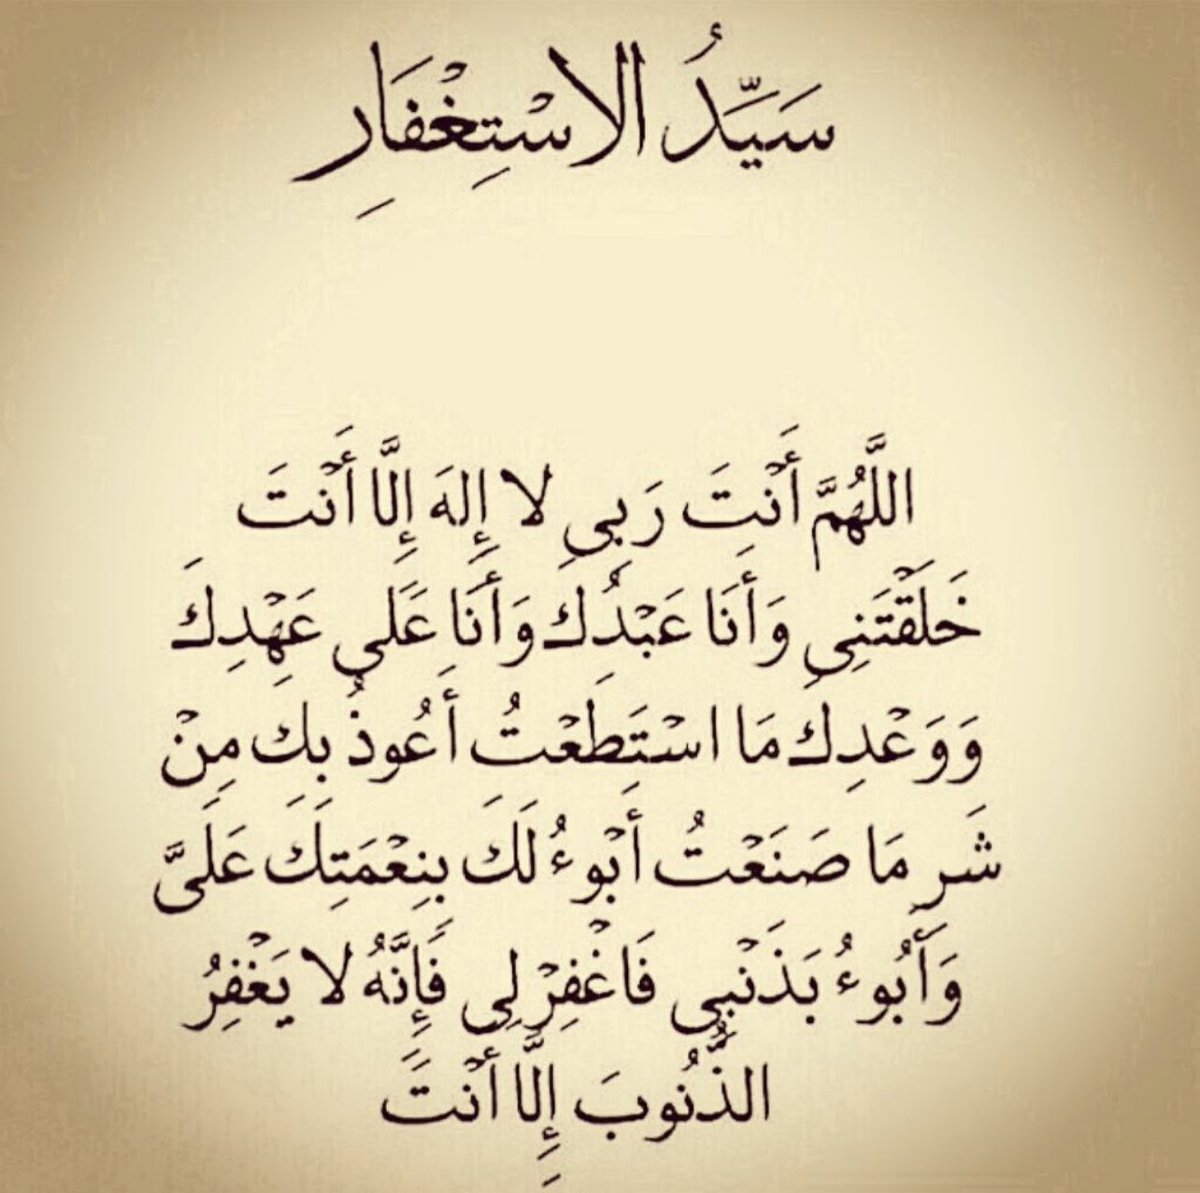 سَيِّدُ الاسْتِغْفَارِ
اللَّهُمَّ أَنْتَ رَبِي لا إِلهَ إِلَّا أَنْتَ
خَلَقْتَنِي وَأَنَا عَبْدُكَ وَأَنَا عَلَى عَهْدِكَ
وَوَعْدِكَ مَا اسْتَطَعْتُ أَعُوذُ بِكَ مِنْ
شَرِ مَا صَنَعْتُ أَبْوءُ لَكَ بِنِعْمَتِكَ عَلَيَّ
وَأَبُوءُ بَذَنْبِي فَاغْفِرْ لِي فَإِنَّهُ لا يَغْفِرُ
الذُّنُوبَ إِلَّا أَنْتَ